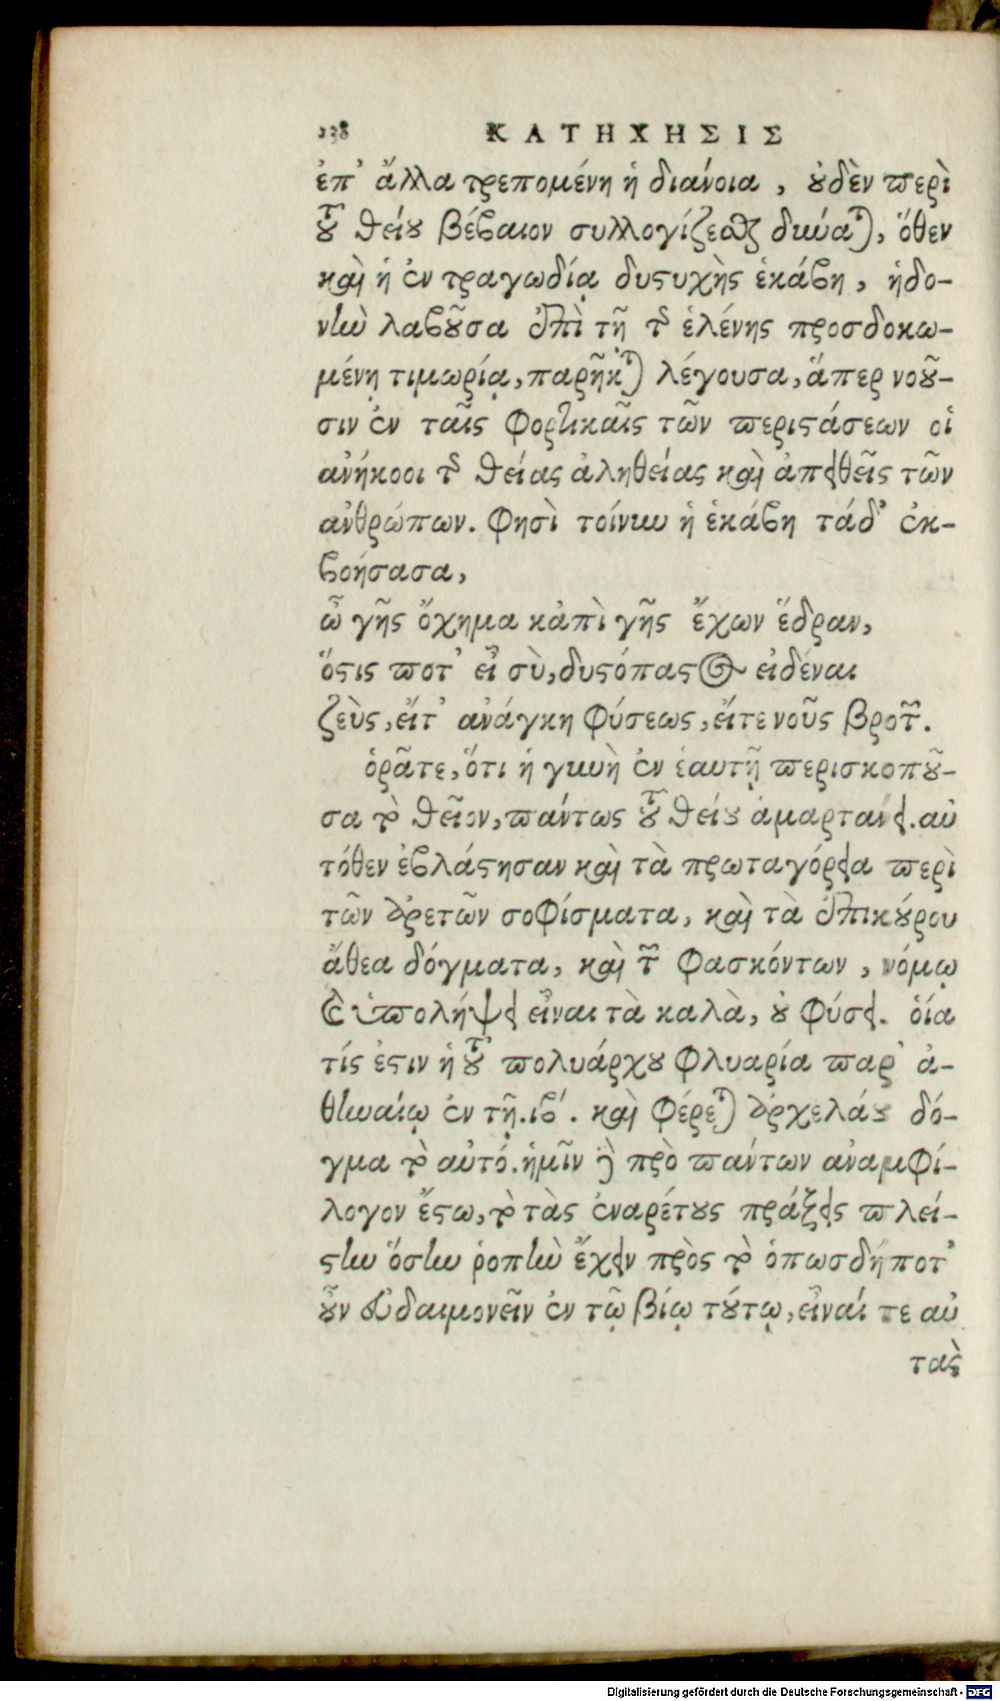 138 ΚΑΤΗΧΗΣΙΣ
ἐπ' ἄλλα τρεπομένη ἡ διάνοια, οὐδὲν περὶ
τοῦ θείου βέβαιον συλλογίζεσθαι δύναται, ὅθεν
καὶ ἡ ἐν τραγωδίᾳ δυστυχὴς ἑκάβη, ἡδο-
νὴν λαβοῦσα ἐπὶ τῇ τῆς ἑλένης προσδοκω-
μένῃ τιμωρίᾳ, παρῆκται λέγουσα, ἅπερ νοοῦ-
σιν ἐν ταῖς φορτικαῖς τῶν περιστάσεων οἱ
ἀνήκοοι τῆς θείας ἀληθείας καὶ ἀπειθεῖς τῶν
ἀνθρώπων. φησὶ τοίνυν ἡ ἑκάβη τάδ' ἐκ-
βοήσασα,
ὦ γῆς ὄχημα κἀπὶ γῆς ἔχων ἕδραν,
ὅστις ποτ' εἶ σὺ, δυστόπαστος εἰδέναι
ζεὺς, εἴτ' ἀνάγκη φύσεως, εἴτε νοῦς βροτῶν.
ὁρᾶτε, ὅτι ἡ γυνὴ ἐν ἑαυτῇ περισκοποῦ-
σα τὸ θεῖον, πάντως τοῦ θείου ἁμαρτάνει. αὐ
τόθεν ἐβλάστησαν καὶ τὰ πρωταγόρεια περὶ
τῶν ἀρετῶν σοφίσματα, καὶ τὰ ἐπικούρου
ἄθεα δόγματα, καὶ τῶν φασκόντων, νόμῳ
καὶ ὑπολήψει εἶναι τὰ καλὰ, οὐ φύσει. οἵα
τίς ἐστιν ἡ τοῦ πολυάρχου φλυαρία παρ' ἀ-
θηναίῳ ἐν τῇ .ιβ'. καὶ φέρεται ἀρχελάου δό-
γμα τὸ αὐτό. ἡμῖν δὲ πρὸ πάντων ἀναμφί-
λογον ἔστω, τὸ τὰς ἐναρέτους πράξεις πλεί-
στην ὅσην ῥοπὴν ἔχειν πρὸς τὸ ὁπωσδήποτ'
οὖν εὐδαιμονεῖν ἐν τῷ βίῳ τούτῳ, εἶναί τε αὐ
τὰς
Digitalisierung gefördert durch die Deutsche Forschungsgemeinschaft - DFG